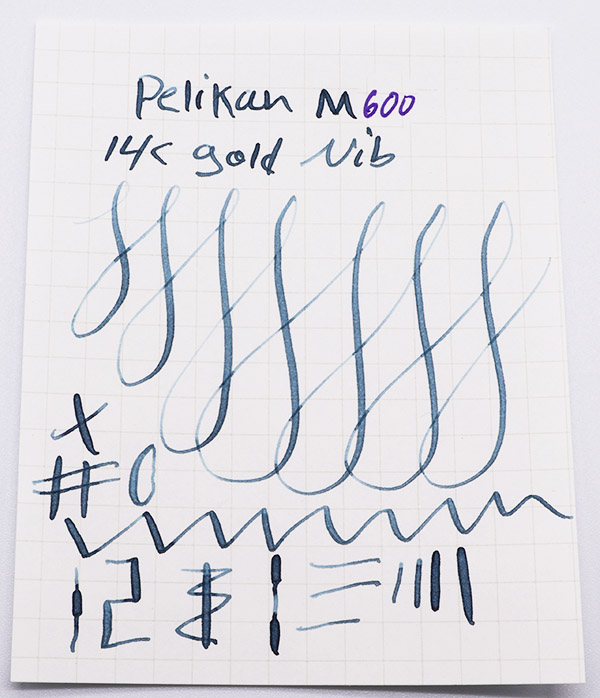 Pelikan M600
14K gold Nib
X
# 0